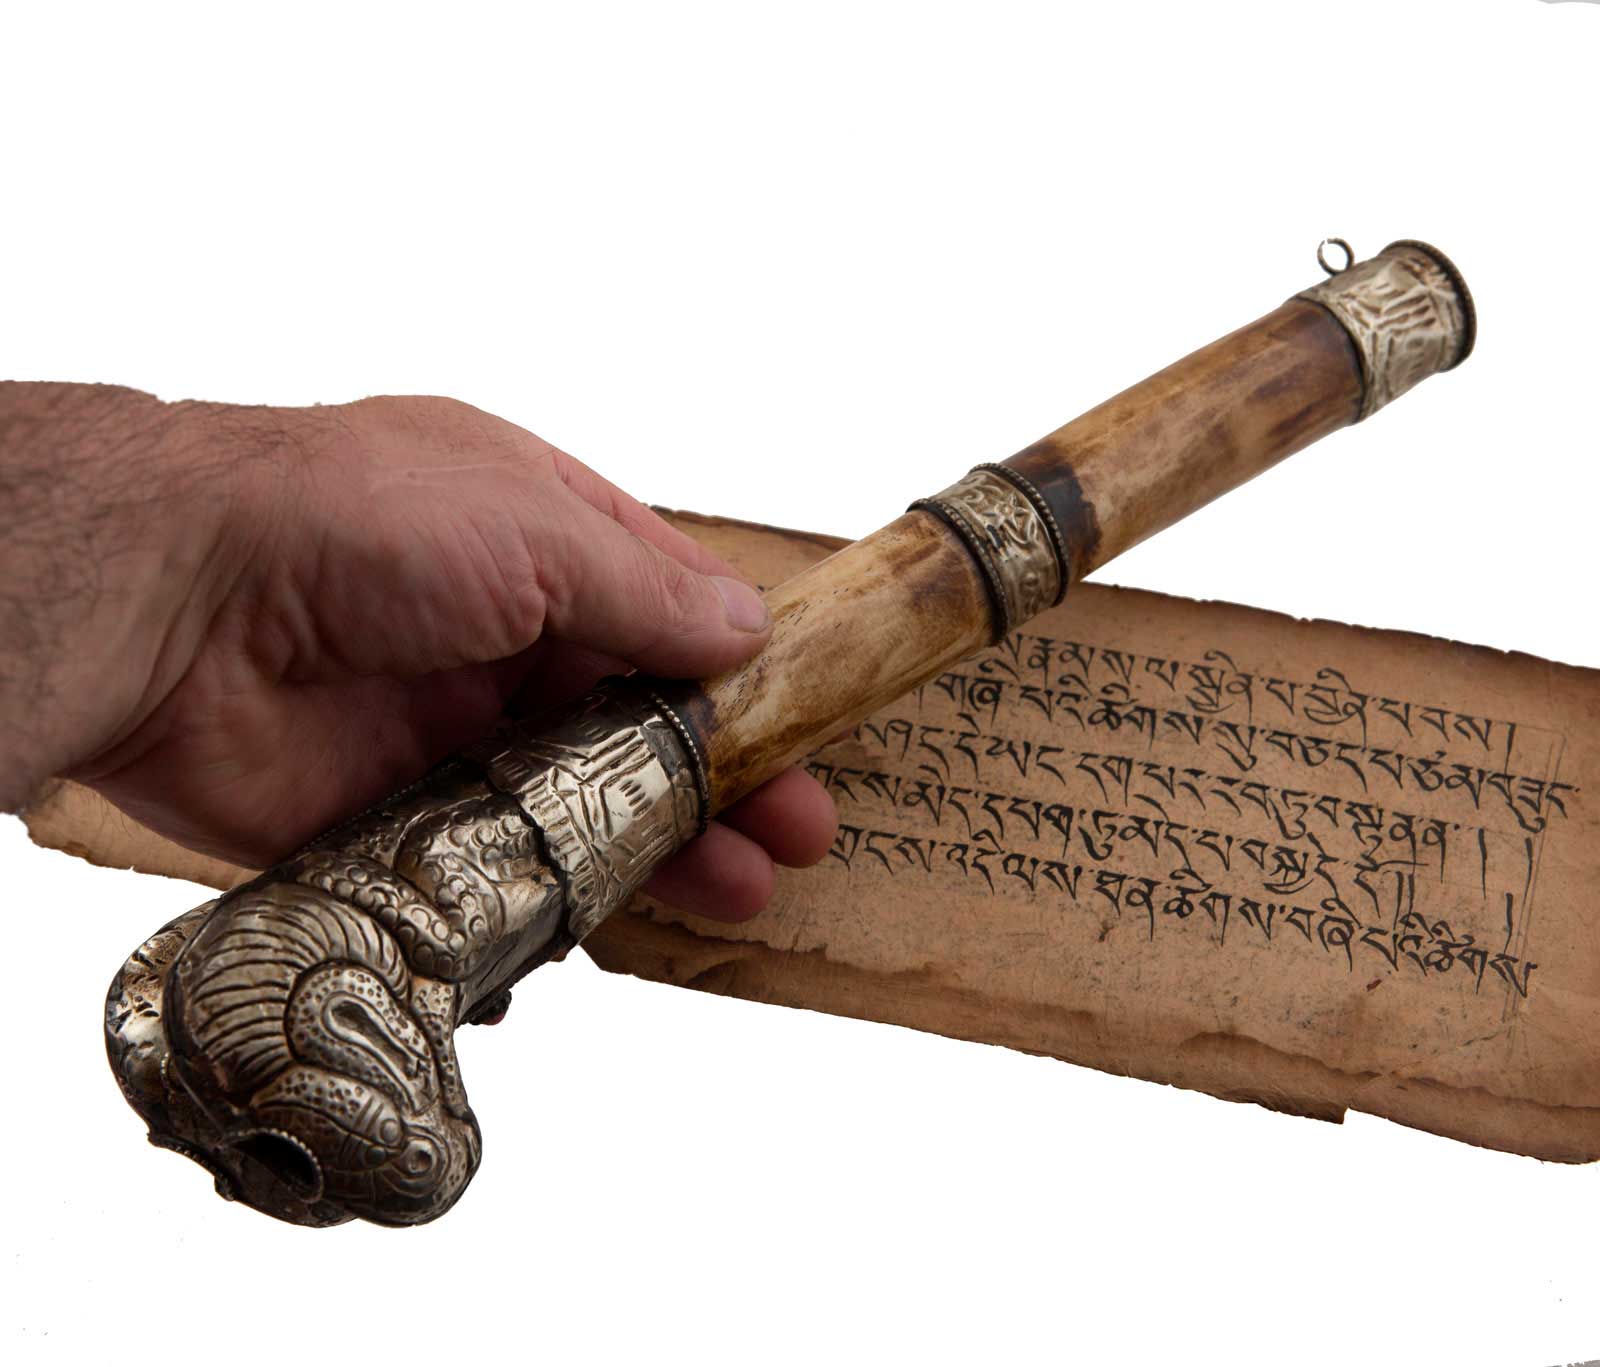 རྣམས་ལ་སྦྱིན་པ་བྱིན་པ་བས།
བཞི་པའི་ཚིགས་སུ་བཅད་པ་ཙམ་བཟུང་
ཤད་དེ་ཡང་དག་པར་རབ་ཏུ་བསྟན་ན།
གྲངས་མེད་དཔག་ཏུ་མེད་པ་བསྐྱེད་དོ།།
གྲངས་འདི་ལས་ཐན་ཚིགས་བཞི་པའི་ཚིགས་